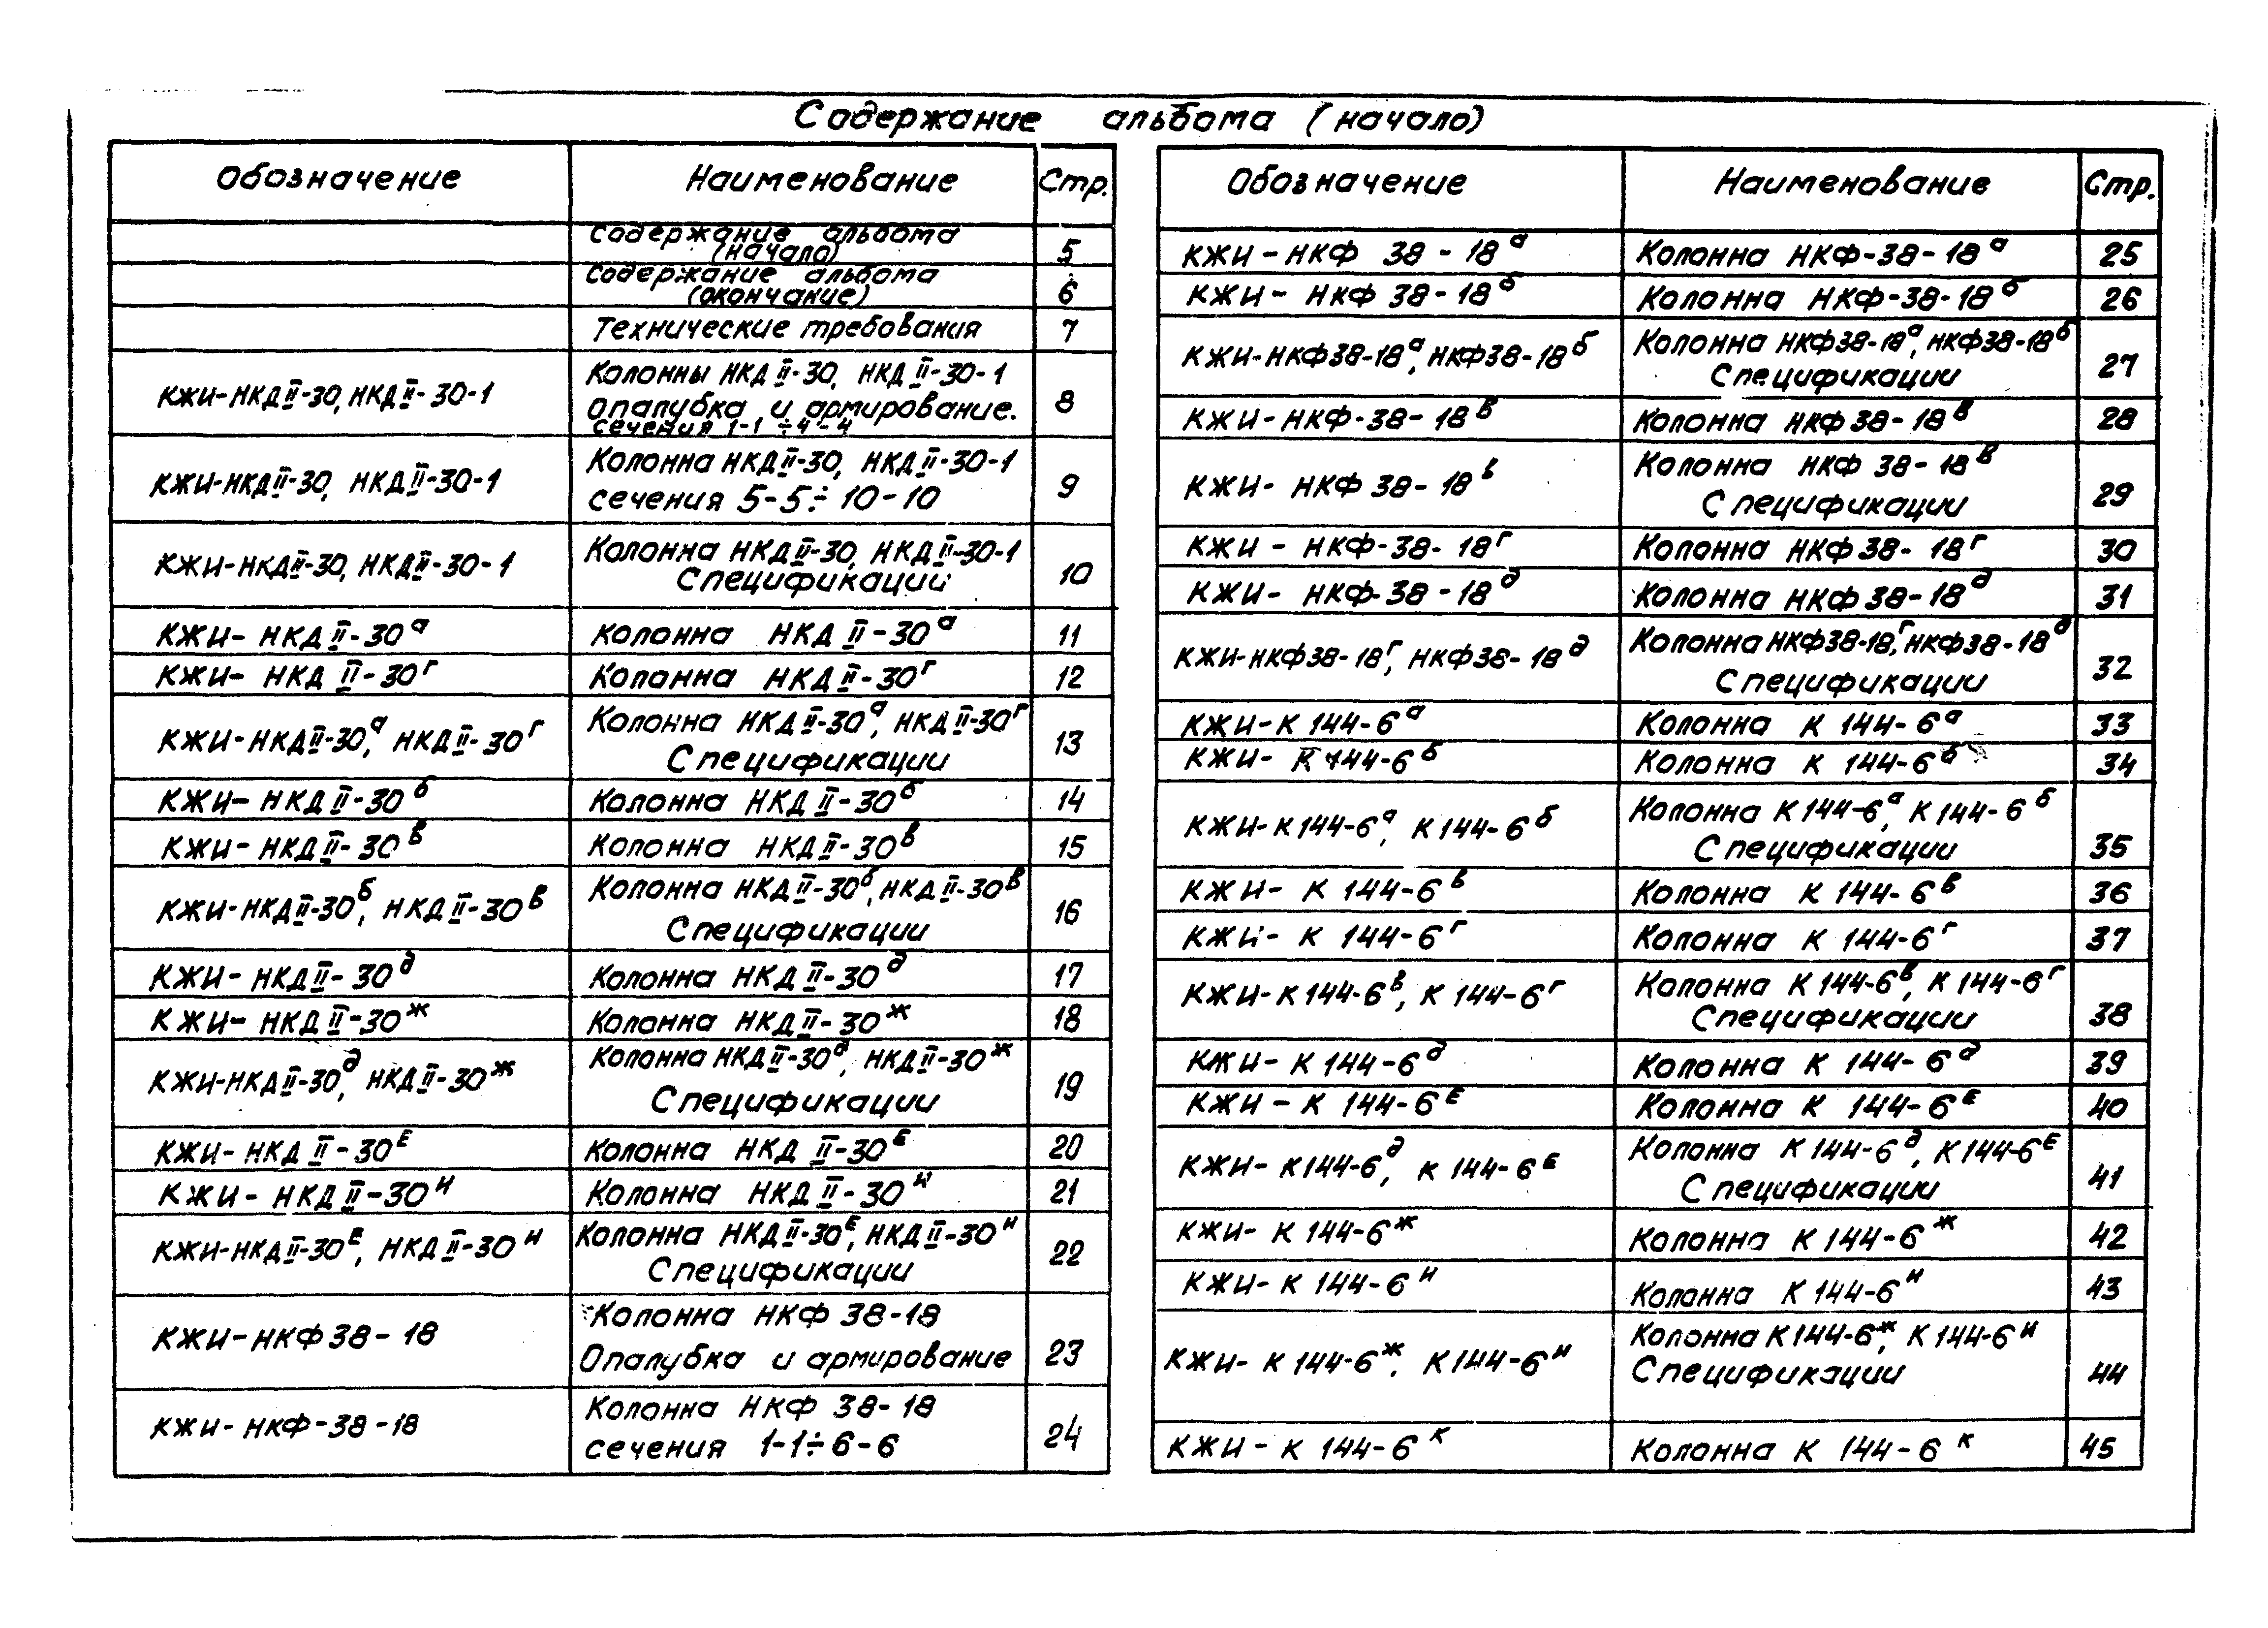 Содержание альбома (начало)
Обозначение Наименование Стр.
Содержание альбома
(начало) 5
Содержание альбома
(окончание) 6
Технические требования 7
КЖИ-НКДII-30, НКДII-30-1 Колонны НКДII-30, НКДII-30-1
Опалубка и армирование.
сечения 1-1÷4-4 8
КЖИ-НКДII-30, НКДII-30-1 Колонна НКДII-30, НКДII-30-1
сечения 5-5÷10-10 9
КЖИ-НКДII-30, НКДII-30-1 Колонна НКДII-30, НКДII-30-1
Спецификации 10
КЖИ-НКДII-30ᵃ Колонна НКДII-30ᵃ 11
КЖИ-НКДII-30г Колонна НКДII-30г 12
КЖИ-НКДII-30а, НКДII-30г Колонна НКДII-30а, НКДII-30г
Спецификации 13
КЖИ-НКДII-30б Колонна НКДII-30б 14
КЖИ-НКДII-30в Колонна НКДII-30в 15
КЖИ-НКДII-30б, НКДII-30в Колонна НКДII-30б, НКДII-30в
Спецификации 16
КЖИ-НКДII-30д Колонна НКДII-30д 17
КЖИ-НКДII-30ж Колонна НКДII-30ж 18
КЖИ-НКДII-30д, НКДII-30ж Колонна НКДII-30д, НКДII-30ж
Спецификации 19
КЖИ-НКДII-30Е Колонна НКДII-30Е 20
КЖИ-НКДII-30И Колонна НКДII-30И 21
КЖИ-НКДII-30Е, НКДII-30И Колонна НКДII-30Е, НКДII-30И
Спецификации 22
КЖИ-НКФ38-18 Колонна НКФ 38-18
Опалубка и армирование 23
КЖИ-НКФ-38-18 Колонна НКФ 38-18
сечения 1-1÷6-6 24
Обозначение Наименование Стр.
КЖИ-НКФ 38-18а Колонна НКФ-38-18а 25
КЖИ-НКФ 38-18б Колонна НКФ-38-18б 26
КЖИ-НКФ38-18а, НКФ38-18б Колонна НКФ38-18а, НКФ38-18б
Спецификации 27
КЖИ-НКФ-38-18в Колонна НКФ38-18в 28
КЖИ-НКФ38-18в Колонна НКФ 38-18в
Спецификации 29
КЖИ-НКФ-38-18г Колонна НКФ38-18г 30
КЖИ-НКФ-38-18д Колонна НКФ38-18д 31
КЖИ-НКФ38-18г, НКФ38-18д Колонна НКФ38-18г, НКФ38-18д
Спецификации 32
КЖИ-К 144-6а Колонна К 144-6а 33
КЖИ-К 144-6б Колонна К 144-6б 34
КЖИ-К144-6а, К144-6б Колонна К144-6а, К144-6б
Спецификации 35
КЖИ-К 144-6в Колонна К 144-6в 36
КЖИ-К 144-6г Колонна К 144-6г 37
КЖИ-К144-6в, К144-6г Колонна К144-6в, К144-6г
Спецификации 38
КЖИ-К 144-6д Колонна К 144-6д 39
КЖИ-К 144-6Е Колонна К 144-6Е 40
КЖИ-К144-6д, К144-6Е Колонна К144-6д, К144-6Е
Спецификации 41
КЖИ-К 144-6ж Колонна К144-6ж 42
КЖИ-К 144-6И Колонна К 144-6И 43
КЖИ-К144-6ж, К144-6И Колонна К144-6ж, К144-6И
Спецификации 44
КЖИ-К 144-6к Колонна К 144-6к 45